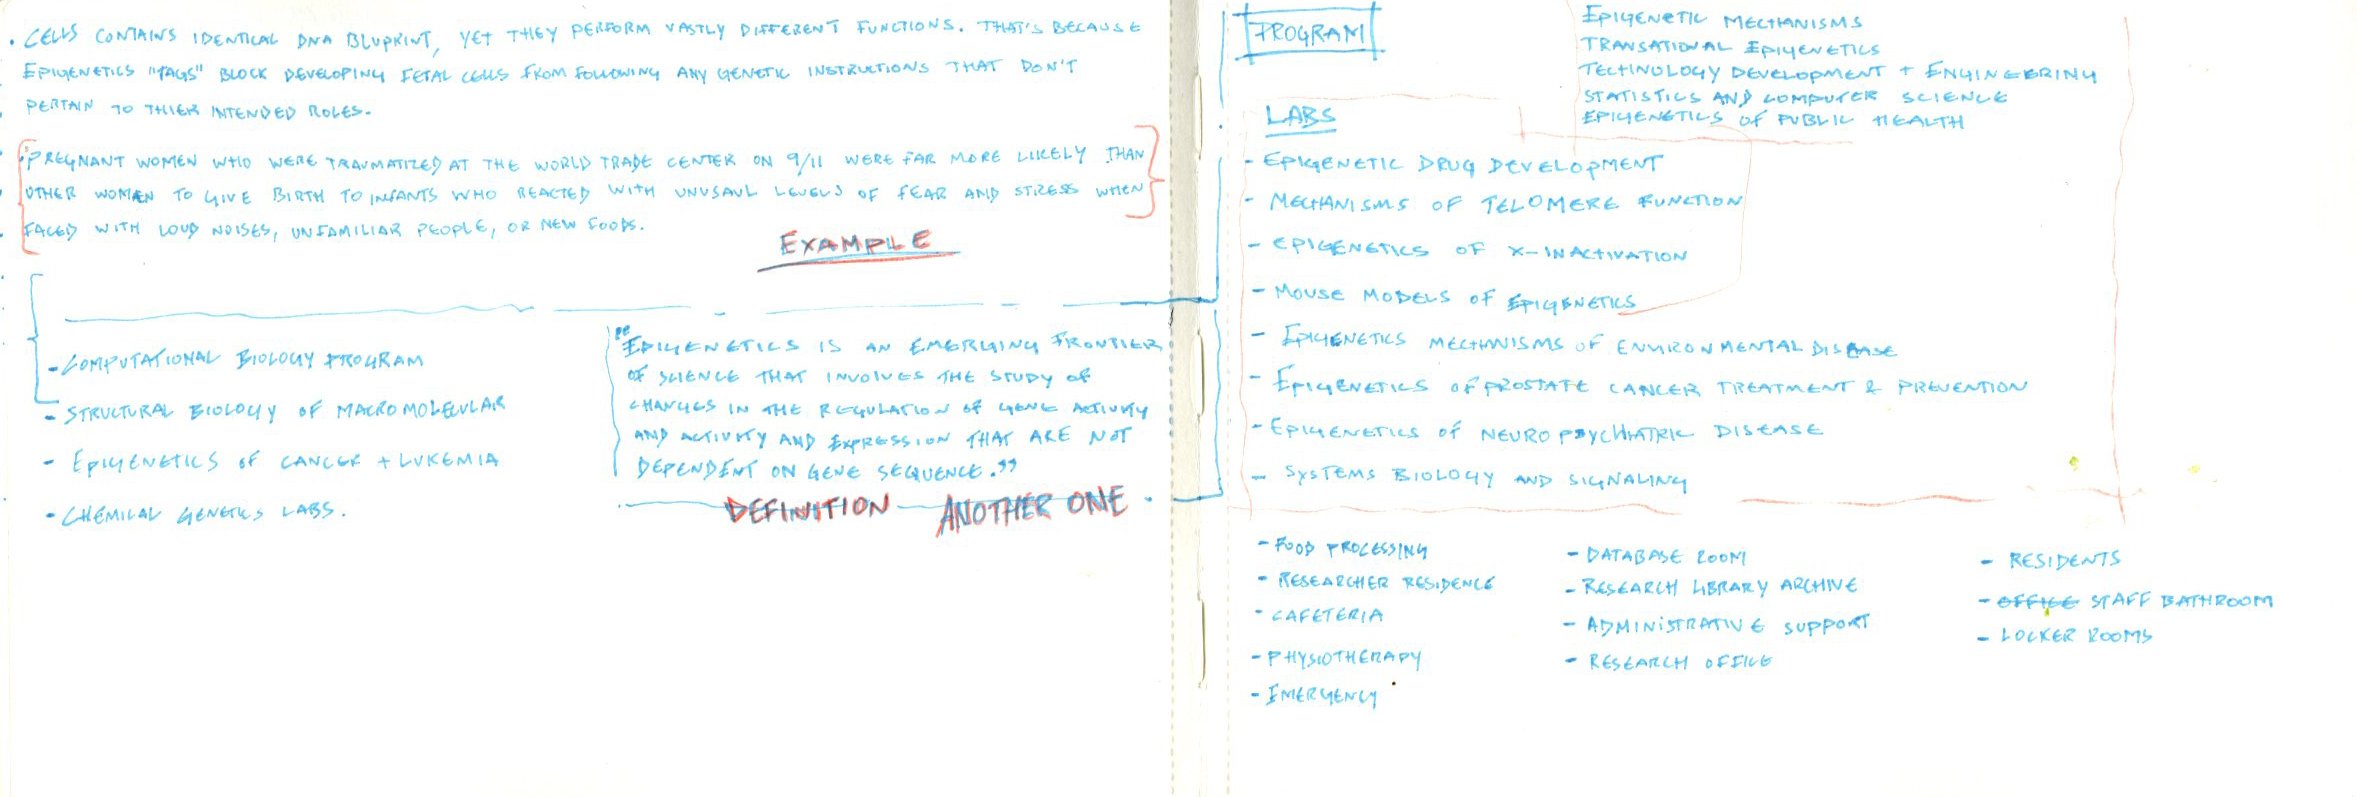 . CELLS CONTAINS IDENTICAL DNA BLUPRINT, YET THEY PERFORM VASTLY DIFFERENT FUNCTIONS. THAT'S BECAUSE
EPIGENETICS "TAGS" BLOCK DEVELOPING FETAL CELLS FROM FOLLOWING ANY GENETIC INSTRUCTIONS THAT DON'T
PERTAIN TO THIER INTENDED ROLES.
"PREGNANT WOMEN WHO WERE TRAUMATIZED AT THE WORLD TRADE CENTER ON 9/11 WERE FAR MORE LIKELY THAN
OTHER WOMEN TO GIVE BIRTH TO INFANTS WHO REACTED WITH UNUSAUL LEVELS OF FEAR AND STRESS WHEN
FACED WITH LOUD NOISES, UNFAMILIAR PEOPLE, OR NEW FOODS.
EXAMPLE
- COMPUTATIONAL BIOLOGY PROGRAM
- STRUCTURAL BIOLOGY OF MACROMOLECULAR
- EPIGENETICS OF CANCER + LUKEMIA
- CHEMICAL GENETICS LABS.
"EPIGENETICS IS AN EMERGING FRONTIER
OF SCIENCE THAT INVOLVES THE STUDY OF
CHANGES IN THE REGULATION OF GENE ACTIVITY
AND ACTIVITY AND EXPRESSION THAT ARE NOT
DEPENDENT ON GENE SEQUENCE."
DEFINITION - ANOTHER ONE
PROGRAM
EPIGENETIC MECHANISMS
TRANSATIONAL EPIGENETICS
TECHNOLOGY DEVELOPMENT + ENGINEERING
STATISTICS AND COMPUTER SCIENCE
EPIGENETICS OF PUBLIC HEALTH
LABS
- EPIGENETIC DRUG DEVELOPMENT
- MECHANISMS OF TELOMERE FUNCTION
- EPIGENETICS OF X-INACTIVATION
- MOUSE MODELS OF EPIGENETICS
- EPIGENETICS MECHANISMS OF ENVIRONMENTAL DISEASE
- EPIGENETICS OF PROSTATE CANCER TREATMENT & PREVENTION
- EPIGENETICS OF NEUROPSYCHIATRIC DISEASE
- SYSTEMS BIOLOGY AND SIGNALING
- FOOD PROCESSING
- RESEARCHER RESIDENCE
- CAFETERIA
- PHYSIOTHERAPY
- EMERGENCY
- DATABASE ROOM
- RESEARCH LIBRARY ARCHIVE
- ADMINISTRATIVE SUPPORT
- RESEARCH OFFICE
- RESIDENTS
- OFFICE STAFF BATHROOM
- LOCKER ROOMS